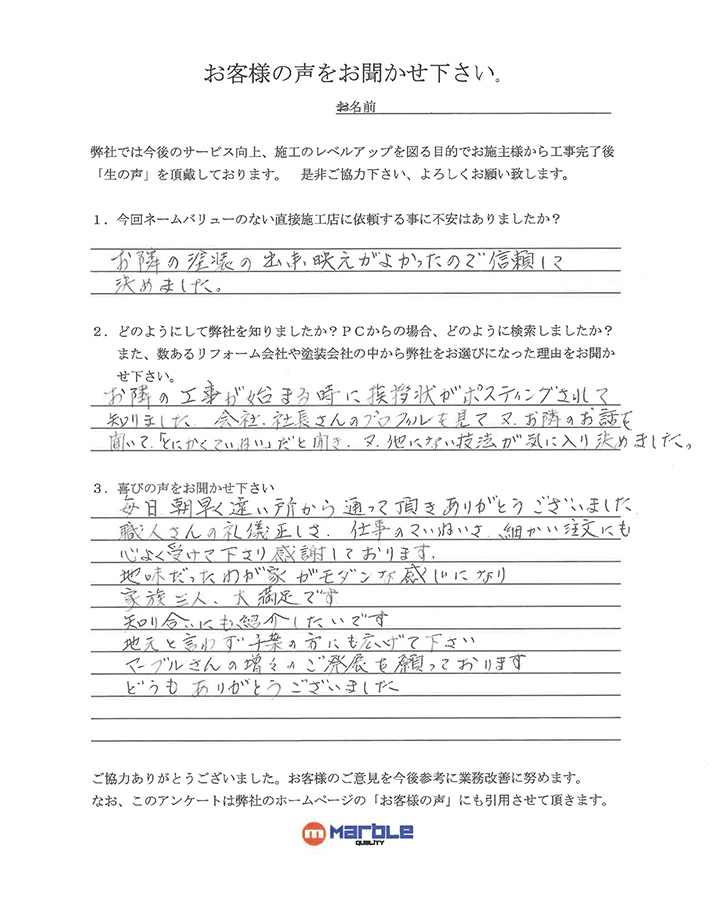 お客様の声をお聞かせ下さい。
お名前
弊社では今後のサービス向上、施工のレベルアップを図る目的でお施主様から工事完了後
「生の声」を頂戴しております。 是非ご協力下さい、よろしくお願い致します。
１．今回ネームバリューのない直接施工店に依頼する事に不安はありましたか？
お隣の塗装の出来映えがよかったので信頼して
決めました。
２．どのようにして弊社を知りましたか？ＰＣからの場合、どのように検索しましたか？
また、数あるリフォーム会社や塗装会社の中から弊社をお選びになった理由をお聞か
せ下さい。
お隣の工事が始まる時に挨拶状がポスティングされて
知りました。会社、社長さんのプロフィルを見て又、お隣のお話を
聞いて、「とにかくていねい」だと聞き、又、他にない技法が気に入り決めました。
３．喜びの声をお聞かせ下さい
毎日朝早く遠い所から通って頂きありがとうございました
職人さんの礼儀正しさ、仕事のていねいさ、細かい注文にも
心よく受けて下さり感謝しております。
地味だったわが家がモダンな感じになり
家族三人、大満足です
知り合いにも紹介したいです
地元と言わず千葉の方にも広げて下さい
マーブルさんの増々のご発展を願っております
どうもありがとうございました
ご協力ありがとうございました。お客様のご意見を今後参考に業務改善に努めます。
なお、このアンケートは弊社のホームページの「お客様の声」にも引用させて頂きます。
m Marble
QUALITY